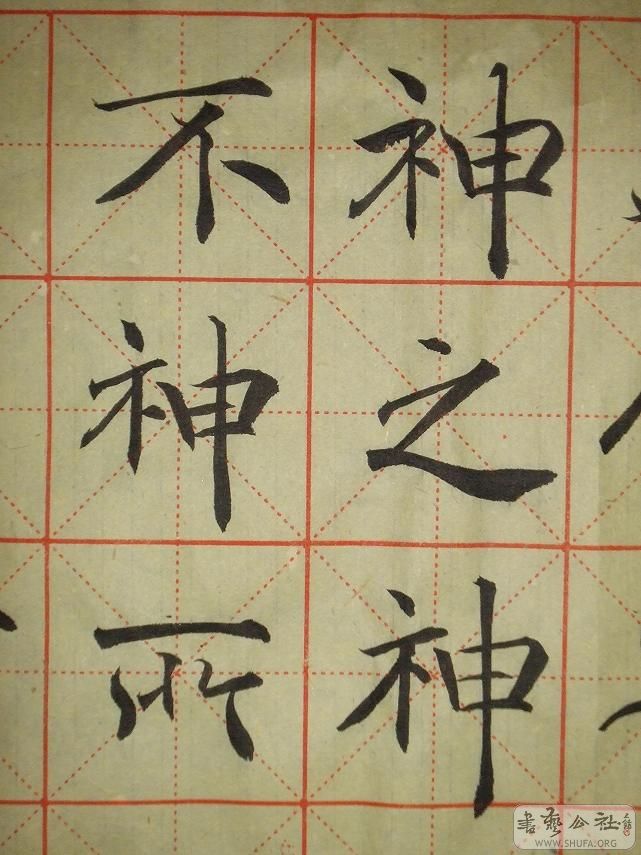 神之神
不神所
書藝公社
WWW.SHUFA.ORG